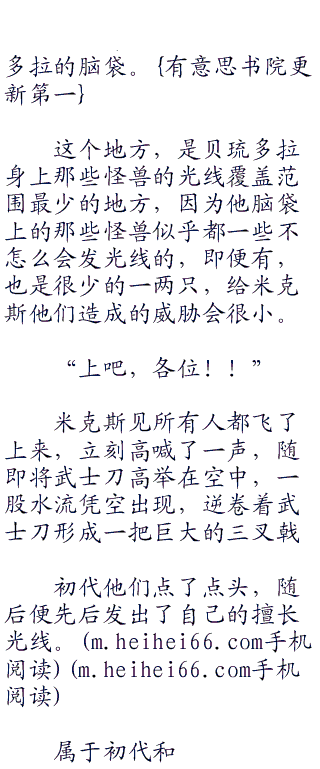 多拉的脑袋。{有意思书院更
新第一}
这个地方，是贝琉多拉
身上那些怪兽的光线覆盖范
围最少的地方，因为他脑袋
上的那些怪兽似乎都一些不
怎么会发光线的，即便有，
也是很少的一两只，给米克
斯他们造成的威胁会很小。
“上吧，各位！！”
米克斯见所有人都飞了
上来，立刻高喊了一声，随
即将武士刀高举在空中，一
股水流凭空出现，逆卷着武
士刀形成一把巨大的三叉戟
初代他们点了点头，随
后便先后发出了自己的擅长
光线。(m.heihei66.com手机
阅读)(m.heihei66.com手机
阅读)
属于初代和